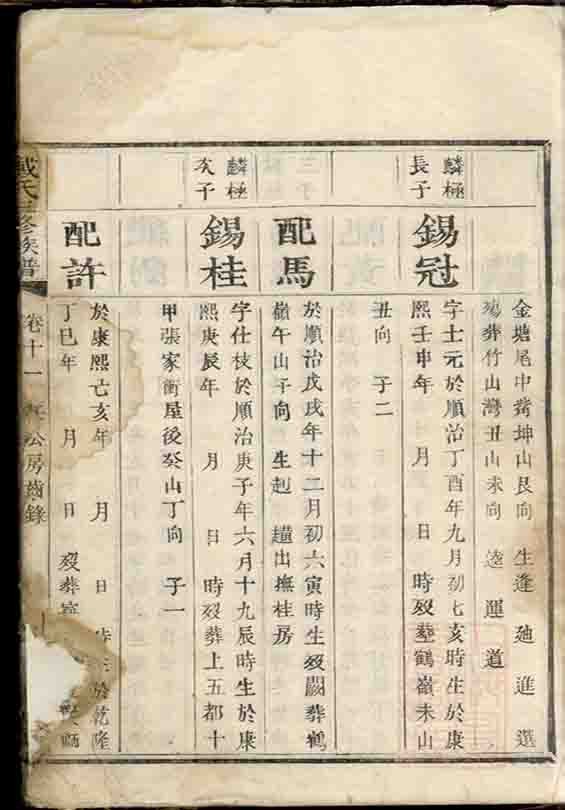 金塘尾中嘴坤山艮向 生逢 迪 進 選
殤葬竹山灣丑山未向 逵 運 道
麟極
長子
錫冠
字士元於順治丁酉年九月初七亥時生於康
熙壬申年 月 日 時歿塟鶴嶺未山
丑向 子二
配馬
於順治戊戌年十二月初六寅時生歿闕葬鶴
嶺午山子向 生 出撫桂房
麟極
次子
錫桂
字仕枝於順治庚子年六月十九辰時生於康
熙庚辰年 月 日 時歿葬上五都十
甲張家衝屋後癸山丁向 子一
配許
於康熙 亥年 月 日 於乾隆
丁巳年 月 日 歿葬
戴氏 修族譜
卷十一 公房齒錄